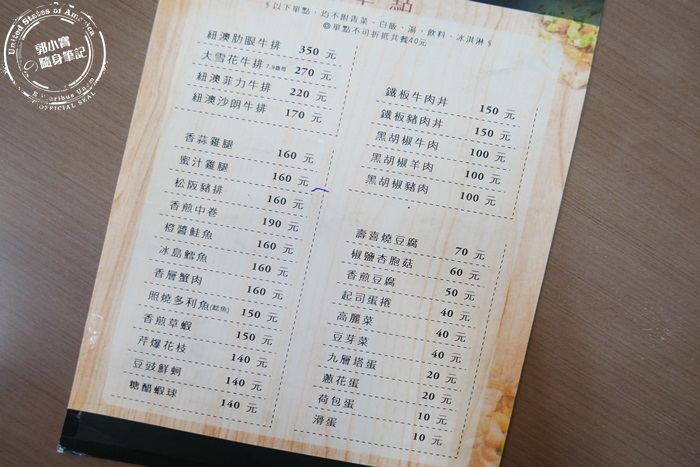 §以下單點，均不附青菜、白飯、湯、飲料、冰淇淋§
◎單點不可折抵共餐40元
紐澳肋眼牛排 350 元
大雪花牛排 270 元
紐澳菲力牛排 220 元
紐澳沙朗牛排 170 元
香蒜雞腿 160 元
蜜汁雞腿 160 元
松阪豬排 160 元
香煎中卷 190 元
橙醬鮭魚 160 元
冰島鱈魚 160 元
香層蟹肉 160 元
照燒多利魚(鯰魚) 150 元
香煎草蝦 150 元
芹爆花枝 140 元
豆豉鮮蚵 140 元
糖醋蝦球 140 元
鐵板牛肉丼 150 元
鐵板豬肉丼 150 元
黑胡椒牛肉 100 元
黑胡椒羊肉 100 元
黑胡椒豬肉 100 元
壽喜燒豆腐 70 元
椒鹽杏胞菇 60 元
香煎豆腐 50 元
起司蛋捲 40 元
高麗菜 40 元
豆芽菜 40 元
九層塔蛋 20 元
蔥花蛋 20 元
荷包蛋 10 元
滑蛋 10 元
United States of America
郭小寶
隨身筆記
E Pluribus Unum
OFFICIAL SEAL